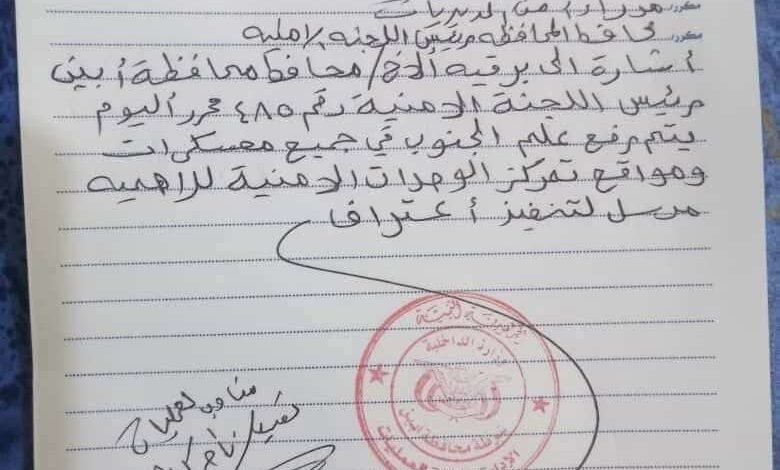 مكرر مدراء أمن المديريات
مكرر محافظ المحافظه رئيس اللجنة الامنيه
أشارة الى برقيه الاخ/ محافظ محافظة أبين
رئيس اللجنة الامنية رقم ٤٨٥ محرر اليوم
يتم رفع علم الجنوب في جميع معسكرات
ومواقع تمركز الوحدات الامنية للاهميه
مرسل لتنفيذ أعتراف
الجمهورية اليمنية
وزارة الداخلية
شرطة محافظة ابين
مناوب العمليات